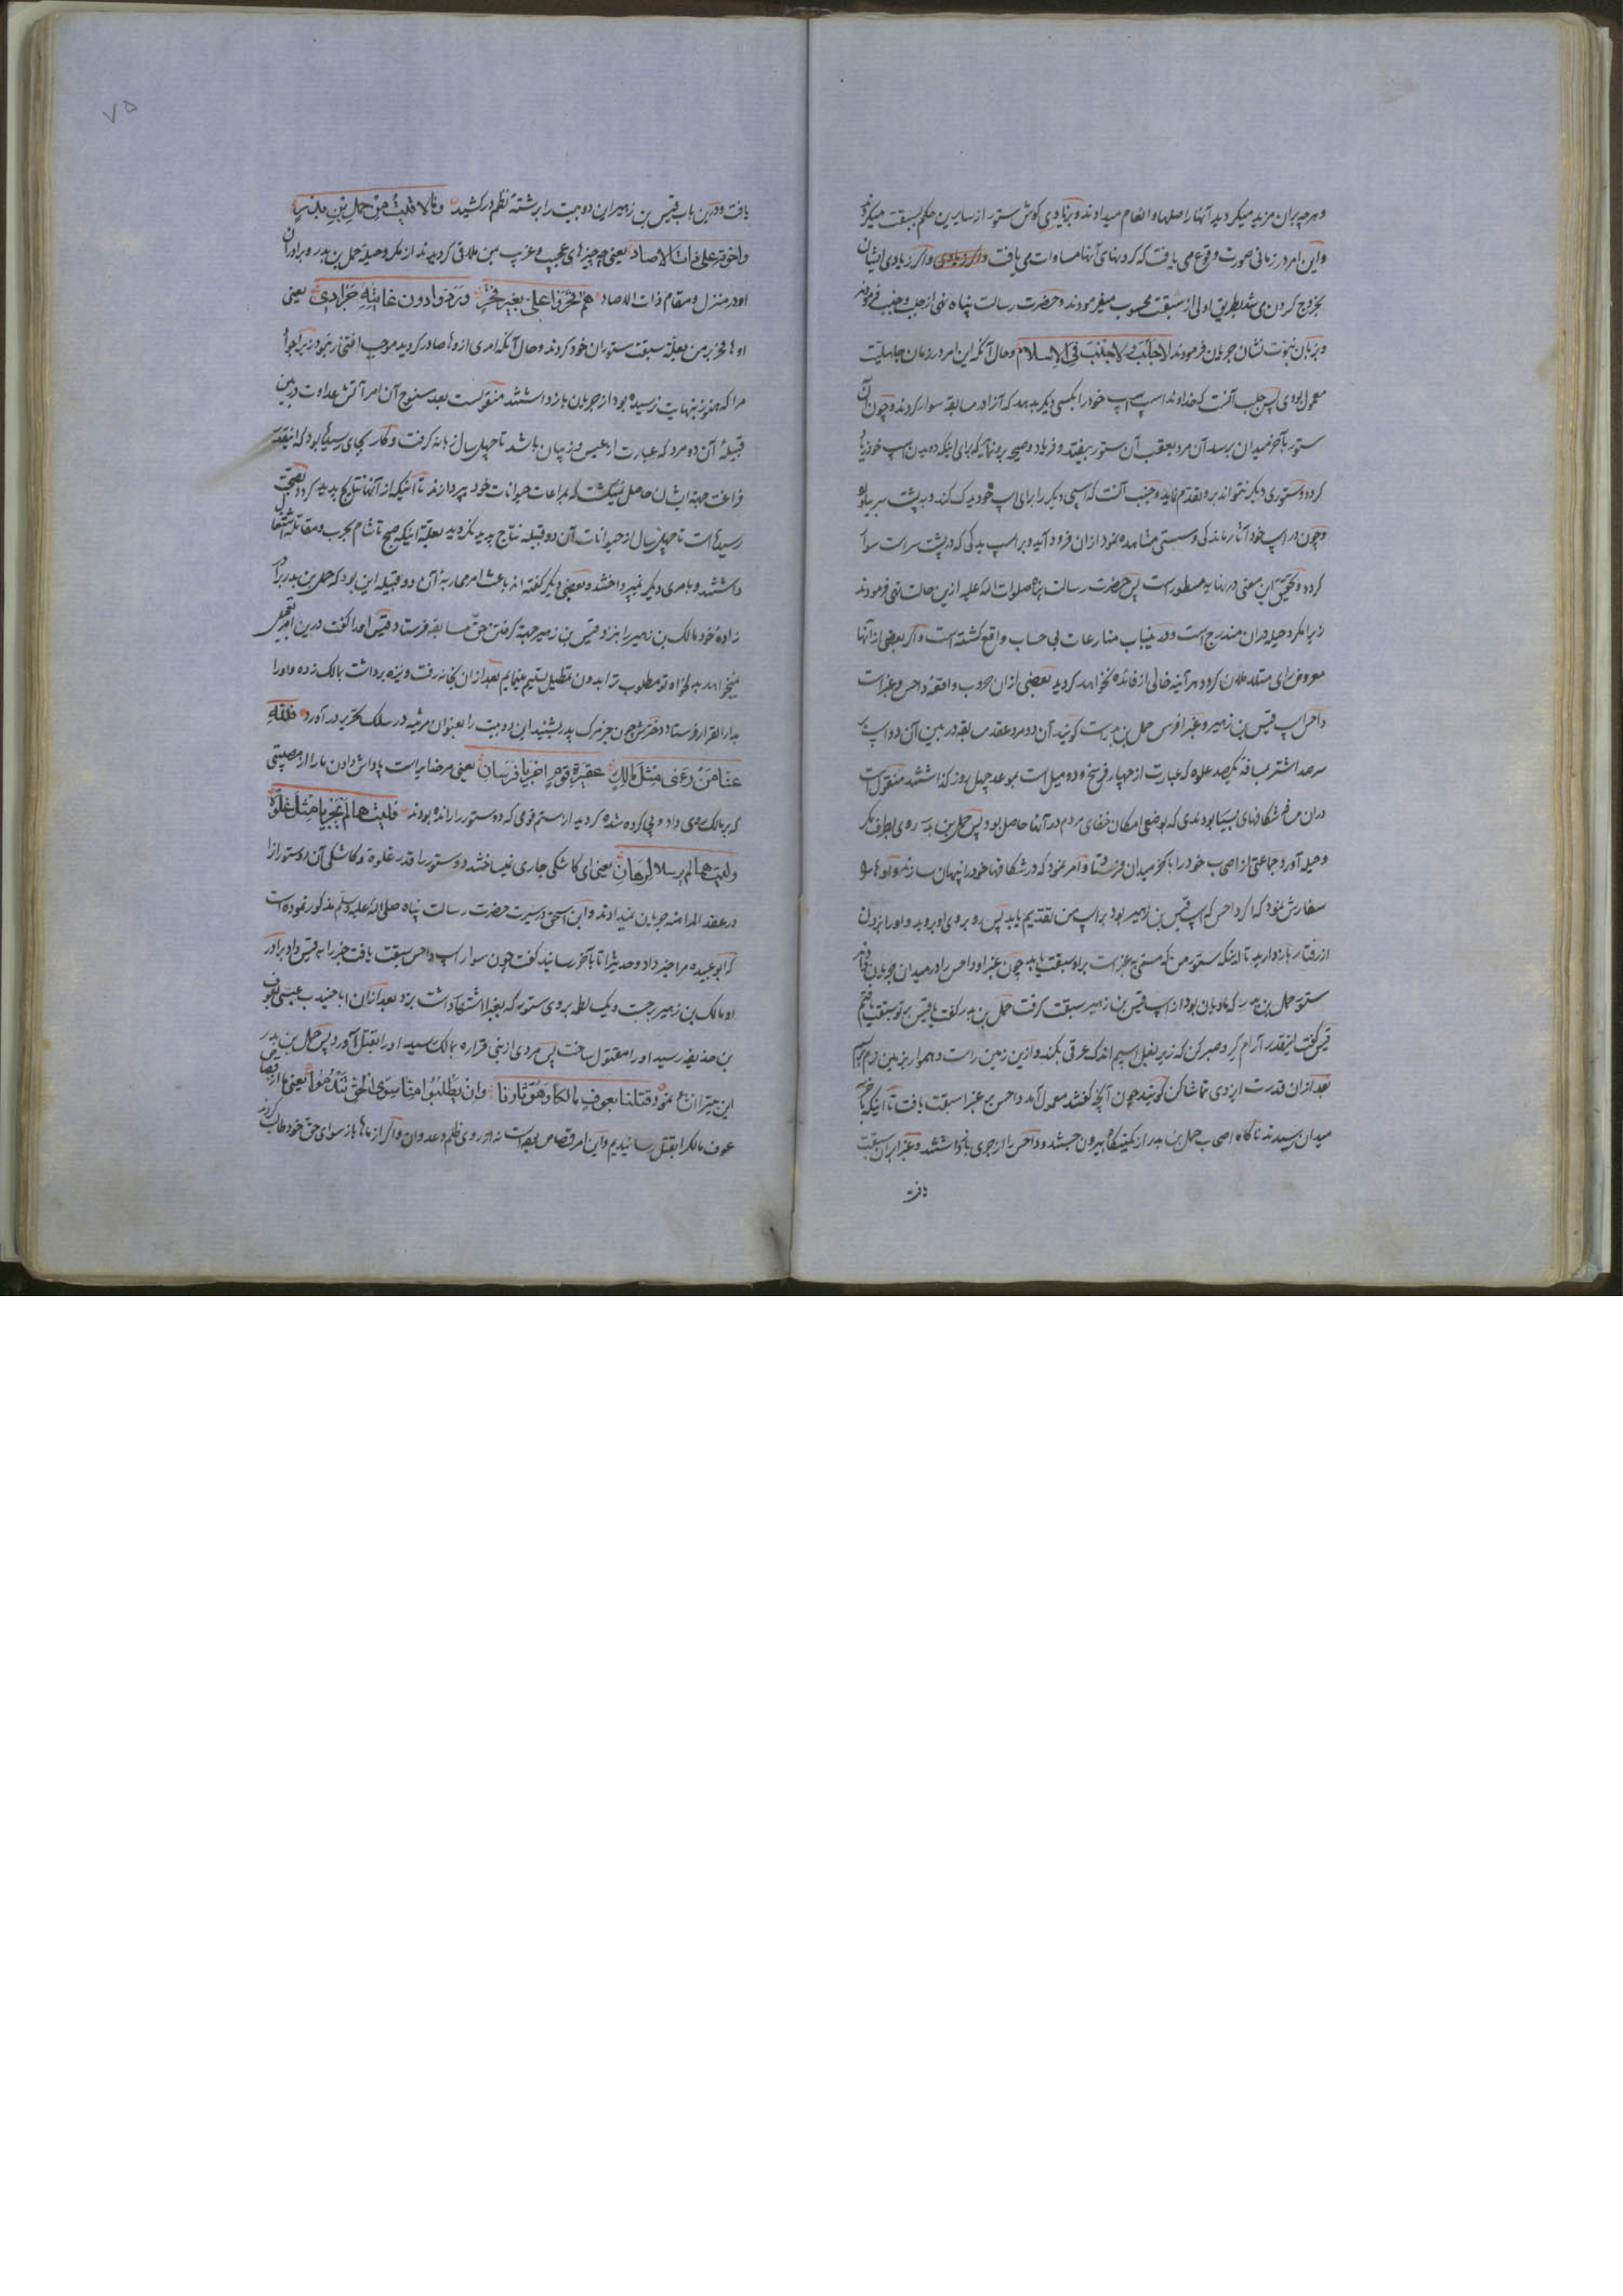 و هرچه بران مزید میکردید آنها را صلها و انعام میدادند و بزیادی کوش ستور از سایرین حکم بسبقت میکرد
و این امر در زمانی صورت وقوع می یافت که کردنهای آنها مساوات می یافت و اگر زیادی ایشان
بخروج کردن می شد بطریق اولی از سبقت محسوب میفرمودند و حضرت رسالت پناه نهی از جلب و جنب فرمودند
و بزبان نبوت نشان جریان فرمودند لا جلب و لا جنب فی الاسلام و حال آنکه این امر در زمان جاهلیت
معمول بودی پس جلب آنست که خداوند اسپ اسپ خود را بکسی دیگر بدهد که آنرا در مسابقه سوار کردند و چون آن
ستور بآخر میدان برسد آن مرد بعقب آن ستور بیفتد و فریاد و صیحه برو نماید برای اینکه دویدن اسپ خود زیاد
کردد و ستوری دیگر نتواند برو تقدم نماید و جنب آنست که اسپی دیگر را برای اسپ خود یدک کند و به پشت سر بیاورد
و چون در اسپ خود آثار ماندکی و سستی مشاهده نمود از ان فرود آید و بر اسپ یدکی که در پشت سر است سوار
کردد و تحقیق این معنی در نهایه مسطور است پس حضرت رسالت پناه صلوات الله علیه ازین حالت نهی فرمودند
زیرا مکر و حیله در ان مندرج است و در ینباب منازعات بی حساب واقع کشته است و اگر بعضی از آنها
معروض رای مستدعلان کردد هر آینه خالی از فائده نخواهد کردید بعضی از ان حروب واقعه داحس و غبرا است
داحس اسپ قیس بن زهیر و غبرا فرس حمل بن بدر است کویند آن دو مرد عقد مسابقه در بین آن دو اسپ بر
سر صد اشتر بمسافه یکصد علوه که عبارت از چهار فرسخ و دو میل است بموعد چهل روز کذاشتند منقول است
در ان مسافه شکافهای بسیار بودندی که بوضع امکان خفای مردم در آنها حاصل بود پس حمل بن بدر روی بطرف مکر
و حیله آورد و جماعتی از اصحاب خود را بآخر میدان فرستاد و امر نمود که در شکافها خود را پنهان سازند و آنها را
سفارش نمود که اگر داحس که اسپ قیس بن زهیر بود بر اسپ من تقدیم یابد پس رو بروی او بروید و او را از دویدن
از رفتار باز دارید تا اینکه ستور من که مسمی به غبرا است براو سبقت یابد چون غبرا و داحس را در میدان جریان دادند
ستور حمل بن بدر که مادیان بود از اسپ قیس بن زهیر سبقت کرفت حمل بن بدر کفت یا قیس بر تو سبقت یافتم
قیس کفت اینقدر آرام کیر و صبر کن که زیر بغل اسپم اندک عرقی بکند و ازین زمین راست و هموار بزمین نرم برسیم
بعد ازان قدرت ایزدی تماشا کن کویند چون آنچه کفتند معمول آمد داحس بر غبرا سبقت یافت تا اینکه بآخر
میدان رسیدند ناکاه اصحاب حمل بن بدر از کمینکاه بیرون جستند و داحس را از جری باز داشتند و غبرا بران سبقت
یافت
۷۵
یافت و درین باب قیس بن زهیر این دو بیت را برشته نظم در کشید و ما لاقیت من حمل بن بدر
و اخوته علی ذات الاصاد یعنی چه چیزهای عجیب و غریب بمن ملاقی کردیدند از مکر و حیله حمل بن بدر و برادران
او در منزل و مقام ذات الاصاد هم فخروا علی بغیر فخر و ردوا دون غایته جوادی یعنی
اوها فخر بر من بعله سبقت ستوران خود کردند و حال آنکه امری از وها صادر کردید موجب افتخار نبود زیرا جواد
مرا که هنوز بنهایت نرسیده بود از جریان باز داشتند منقولست بعد سنوح آن امر آتش عداوت در بین
قبیله آن دو مرد که عبارت از عبس و ذبیان باشد تا چهل سال زبانه کرفت و کار بجای رسیده بود که اینقدر
فراغت جهة ایشان حاصل نمیکشت که بمراعات حیوانات خود بپردازند تا اینکه از آنها نتاج پدید کردد بصحت
رسیده است تا چهل سال از حیوانات آن دو قبیله نتاج پدید نکردید بعلة اینکه صبح تا شام بحرب و مقاتله اشتغال
داشتند و بامری دیگر نمیپرداختند و بعضی دیگر گفته اند باعث امر محاربه آن دو قبیله این بود که حمل بن بدر برادر
زاده خود مالک بن زهیر را بنزد قیس بن زهیر جهة کرفتن حق مسابقه فرستاد قیس او را کفت درین امر تعجیل
میخواهد بدلخواه تو مطلوب ترا بدون تعطیل تسلیم مینمایم بعد ازان بخانه رفت و نیزه برداشت بمالک زده و او را
بدار القرار فرستاد دخترش چون خبر مرک پدر بشنید این دو بیت را بعنوان مرثیه در سلک تحریر در آورد فلله
عینا من رعی مثل مالک عقیرة قوم ان جری فرسان یعنی مر خدایراست پاداش دادن ما را از مصیبتی
که بر مالک روی داد و پی کرده شده کردید از ستم قومی که دو ستور را رانده بودند فلیتهما لم یجریا مثل غلوة
ولیتهما لم یرسلا لرهان یعنی ای کاشکی جاری نمیساختند دو ستور را قدر غلوه و کاشکی آن دو ستور را
در عقد المراهنه جریان نمیدادند و ابن اسحق در سیرت حضرت رسالت پناه صلی الله علیه و سلم مذکور نموده است
که ابو عبیده مرا خبر داد و حدیث را تا بآخر رسانید کفت چون سوار اسپ داحس سبقت یافت خبر را به قیس داد برادر
او مالک بن زهیر برجست و یک لطمه بروی ستور که بغبرا اشتهار داشت بزد بعد ازان ابا جنیدب عبسی بعوف
بن حذیفه رسید او را مقتول ساخت پس مردی از بنی فزاره بمالک رسید او را بقتل آورد پس حمل بن بدر
این بیت را انشاء نمود قتلنا بعوف مالکا و هو ثارنا و ان یطلبوا منا سوی الحق تندموا یعنی ما از قصاص
عوف مالکرا بقتل رسانیدیم و این امر قصاص بوده است نه از روی ظلم و عدوان و اگر از ماها باز سوای حق خود طالب کردند